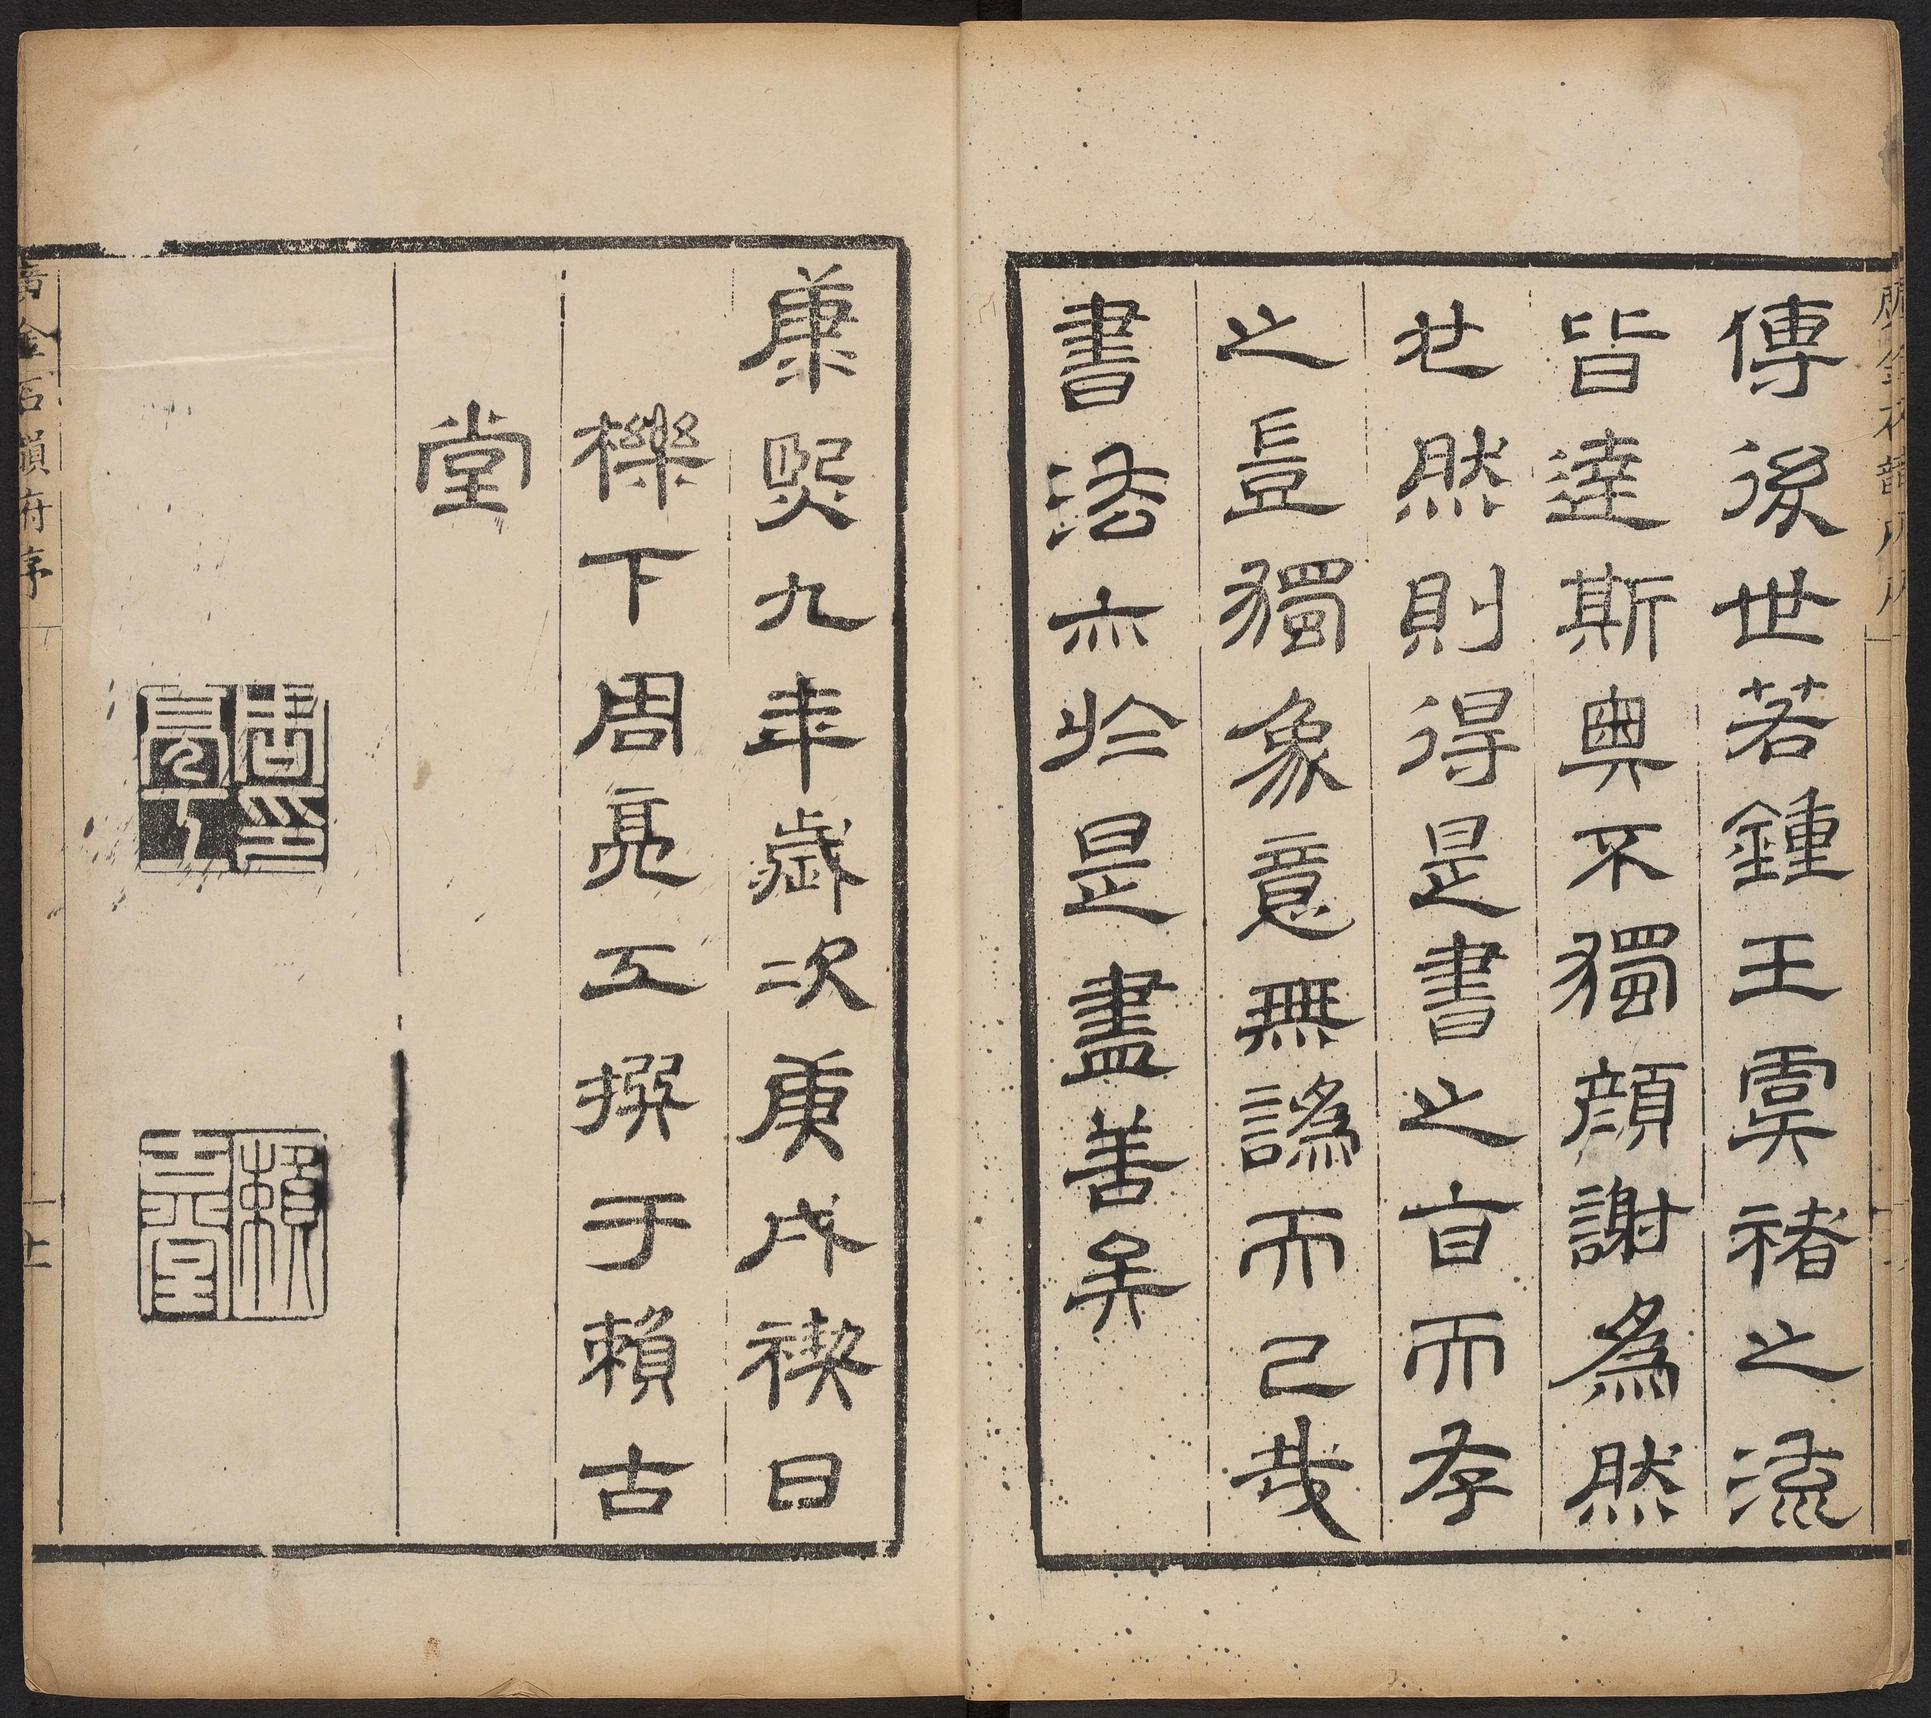 傳後世若鍾王虞褚之流
皆達斯奥不獨顔謝為然
也然則得是書之旨而存
之豈獨象意無譌而已哉
書法亦於是盡善矣
康熙九年歲次庚戌禊日
櫟下周亮工撰于賴古
堂
周亮工印
賴古堂
廣金石韻府序